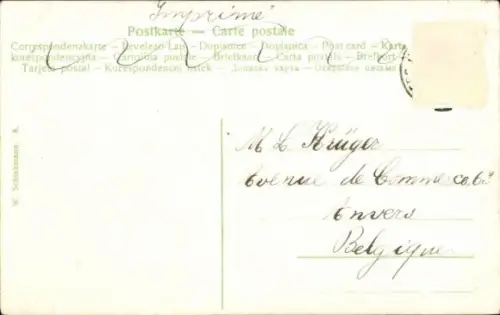 Imprimé
Postkarte — Carte postale
Correspondenzkarte — Levelező Lap — Dopisnice — Dopisnica — Post card — Karta
korespondencyjna — Cartolina postale — Briefkaart — Carta postale — Brefkort
Tarjeta postal — Korespondenční lístek —
M L Krüger
Avenue de Commerce 63
Anvers
Belgique